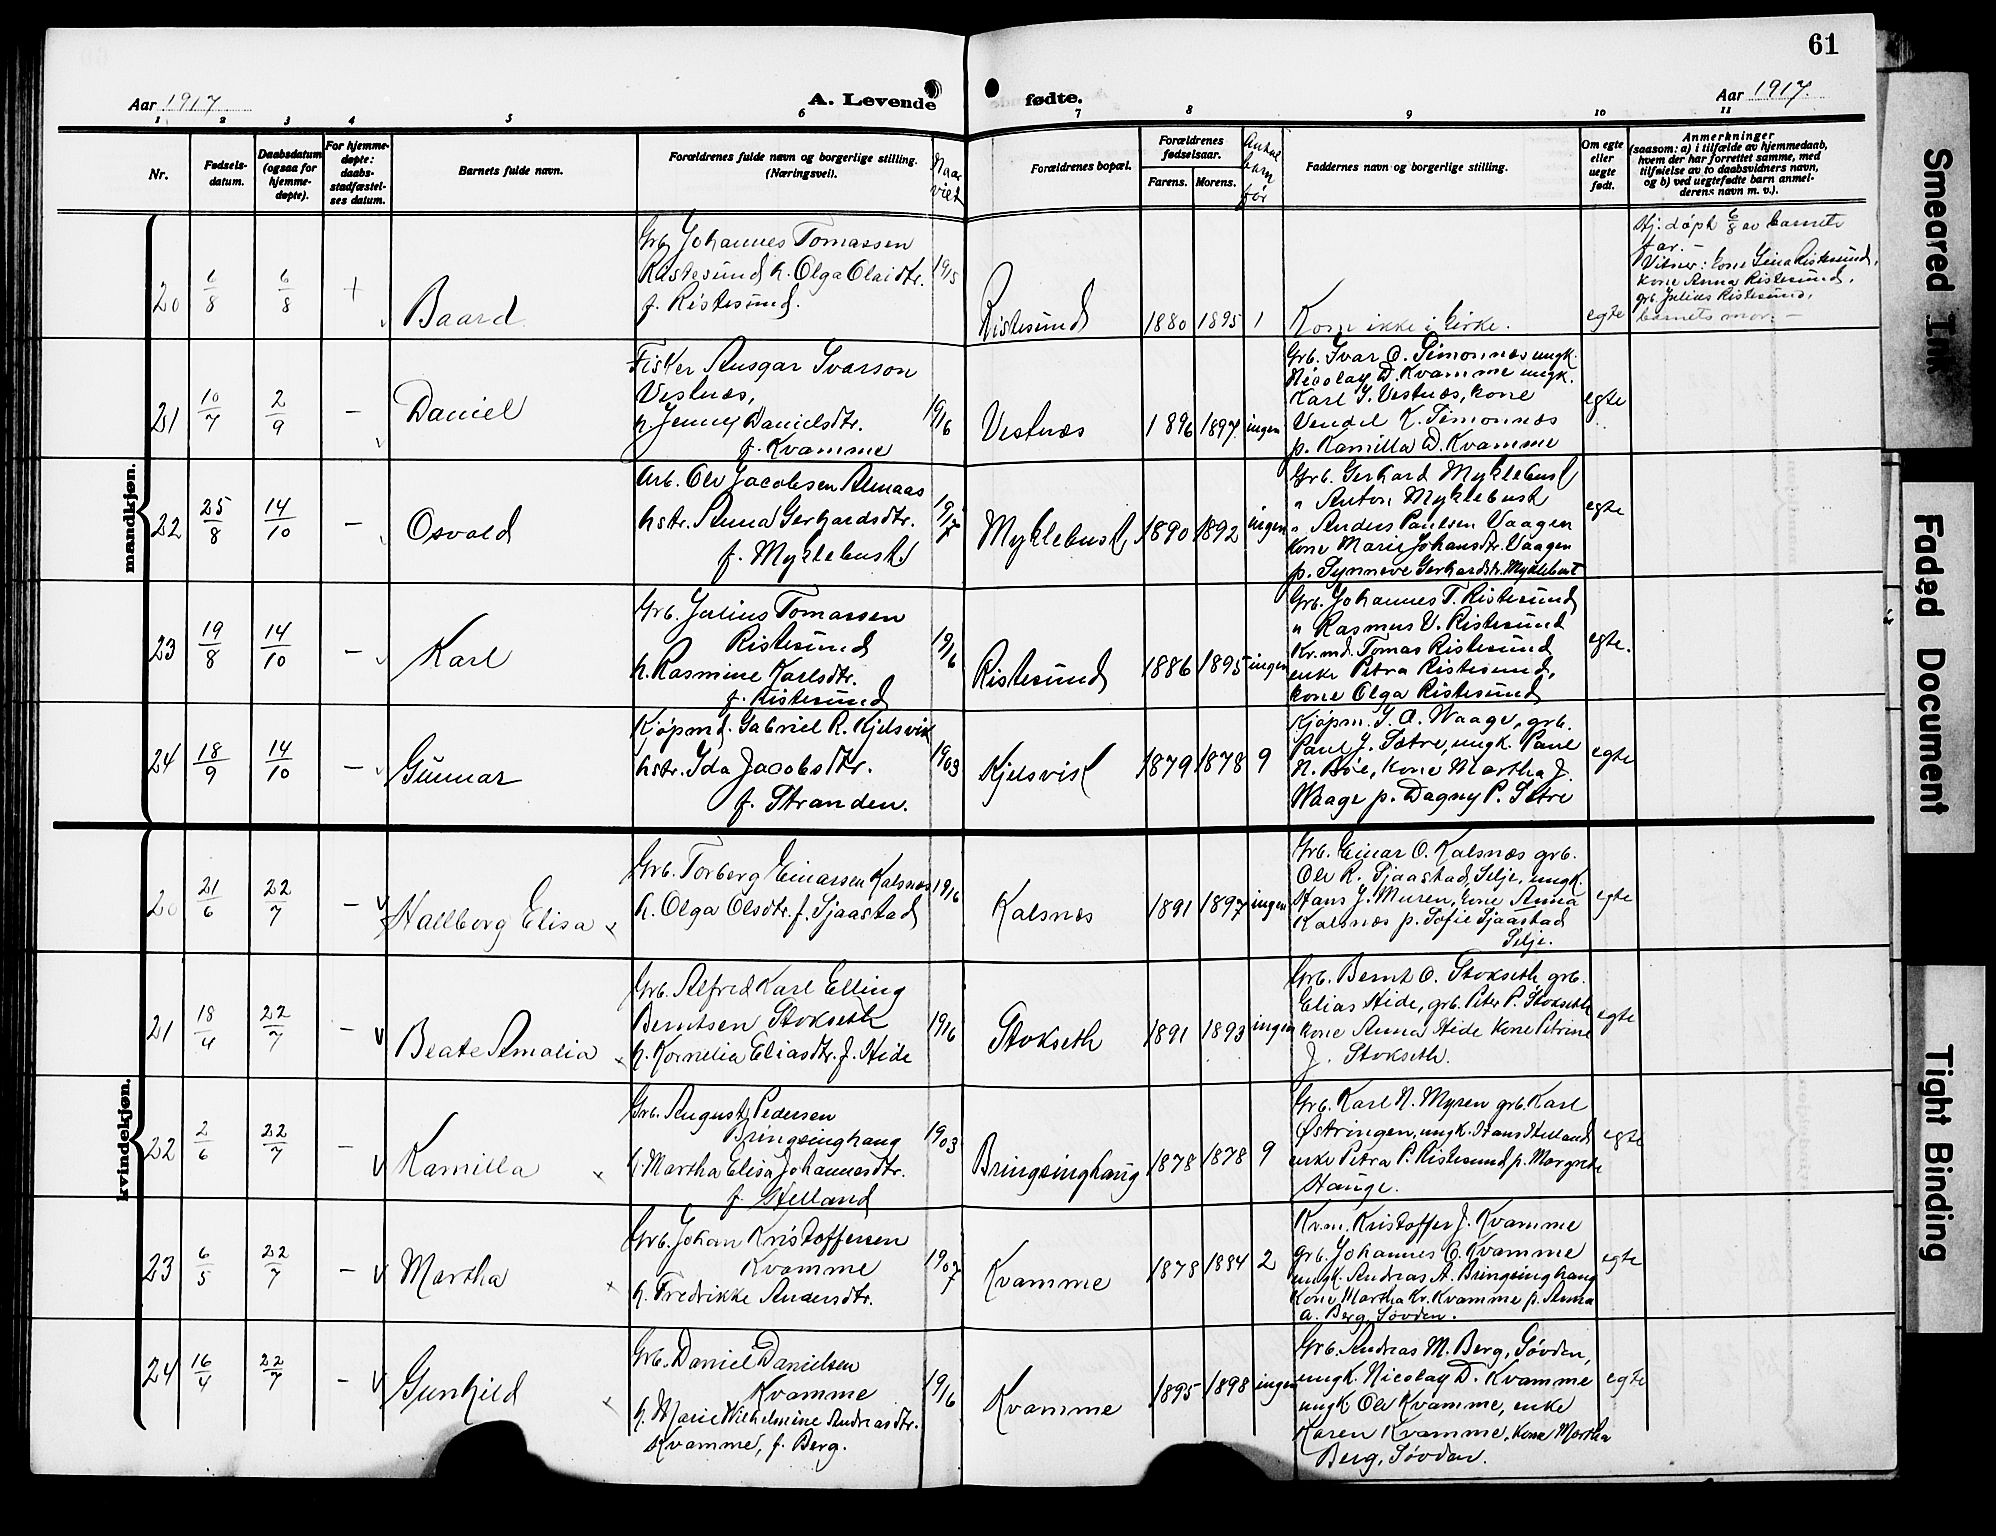 61
Aar 1917
A. Levende
fødte.
Aar 1917.
1 2 3 4 5 6 7 8 9 10 11
Nr.
Fødsels-
datum.
Daabsdatum
(ogsaa for
hjemme-
døpte).
For hjemme-
døpte:
daabs-
stadfæstel-
ses datum.
Barnets fulde navn.
Forældrenes fulde navn og borgerlige stilling.
(Næringsvei).
Naar
viet
Forældrenes bopæl.
Forældrenes
fødselsaar.
Farens. Morens.
Antal
barn
før
Faddernes navn og borgerlige stilling.
Om egte
eller
uegte
født.
Anmerkninger
(saasom: a) i tilfælde av hjemmedaab,
hvem der har forrettet samme, med
tilføielse av to daabsvidners navn,
og b) ved uegtefødte barn anmel-
derens navn m. v.).
mandkjøn.
20 6/8 6/8 + Baard
Grb. Johannes Tomassen
Ristesund h. Olga Olaidtr.
f. Ristesund.
1915 Ristesund 1880 1895 1
Kom ikke i kirke.
egte
Hj: døpt 6/8 av barnets
far. -
Vitner: kone Lina Ristesund,
kone Anna Ristesund,
grb. Julius Ristesund,
barnets mor. -
21 10/7 2/9 - Daniel
Fisker Ansgar Ivarson
Vestnæs,
h. Jenny Danielsdtr.
f. Kvamme
1916 Vestnæs 1896 1897 ingen
Grb. Ivar O. Simonnæs ungk.
Nicolay D. Kvamme ungk.
Karl I. Vestnæs, kone
Vendel K. Simonnæs
p. Kamilla D. Kvamme
egte
22 25/8 14/10 - Osvald
Arb. Ole Jacobsen Almaas
hstr. Anna Gerhardsdtr.
f. Myklebust
1917 Myklebust 1890 1892 ingen
Grb. Gerhard Myklebust
" Anton Myklebust
" Anders Paulsen Vaagen
kone Marie Johansdtr. Vaagen
p. Synneve Gerhardsdtr. Myklebust
egte
23 19/8 14/10 - Karl
Grb. Julius Tomassen
Ristesund
h. Rasmine Karlsdtr.
f. Ristesund
1916 Ristesund 1886 1895 ingen
Grb. Johannes T. Ristesund
" Rasmus V. Ristesund
Kr. md. Tomas Ristesund
enke Petra Ristesund,
kone Olga Ristesund
egte.
24 18/9 14/10 - Gunnar
Kjøpmd. Gabriel R. Kjelsvik
hstr. Ida Jacobsdtr.
f. Stranden.
1903 Kjelsvik 1879 1878 9
Kjøpm. J. A. Waage, grb.
Paul J. Sætre, ungk. Paul
N. Bøe, kone Martha J.
Waage p. Dagny P. Sætre
egte
kvindekjøn.
20 21/6 22/7 - Hallborg Elisa
Grb. Torberg Einarsen Kalsnæs
h. Olga Olsdtr. f. Sjaastad
1916 Kalsnæs 1891 1897 ingen
Grb. Einar O. Kalsnæs grb.
Ole R. Sjaastad, Selje, ungk.
Hans J. Muren, kone Anna
Kalsnæs p. Sofie Sjaastad
Selje.
egte
21 18/4 22/7 - Beate Amalia
Grb. Alfred Karl Elling
Berntsen Stokseth
h. Kornelia Eliasdtr. f. Hide
1916 Stokseth 1891 1893 ingen
Grb. Bernt O. Stokseth grb.
Elias Hide, grb. Peter P. Stokseth
kone Anna Hide kone Petrine
J. Stokseth.
egte
22 2/6 22/7 - Kamilla
Grb. August Pedersen
Bringsinghaug
h. Martha Elisa Johannesdtr.
f. Helland
1903 Bringsinghaug 1878 1878 9
Grb. Karl N. Myren grb. Karl
Østringen, ungk. Hans Helland
enke Petra P. Ristesund p. Margrete
Hauge.
egte
23 6/5 22/7 - Martha
Grb. Johan Kristoffersen
Kvamme
h. Fredrikke Andersdtr.
1907 Kvamme 1878 1884 2
Kv.m. Kristoffer J. Kvamme
grb. Johannes O. Kvamme
ungk. Andreas A. Bringsinghaug
kone Martha Kr. Kvamme p. Anna
A. Berg, Søvden.
egte
24 16/4 22/7 - Gunhild
Grb. Daniel Danielsen
Kvamme
h. Marie Wilhelmine Andreasdtr.
Kvamme, f. Berg.
1916 Kvamme 1895 1898 ingen
Grb. Andreas M. Berg, Søvden,
ungk. Nicolay D. Kvamme
ungk Ole Kvamme, enke
Karen Kvamme, kone Martha
Berg, Søvden.
egte
Smeared Ink
Faded Document
Tight Binding